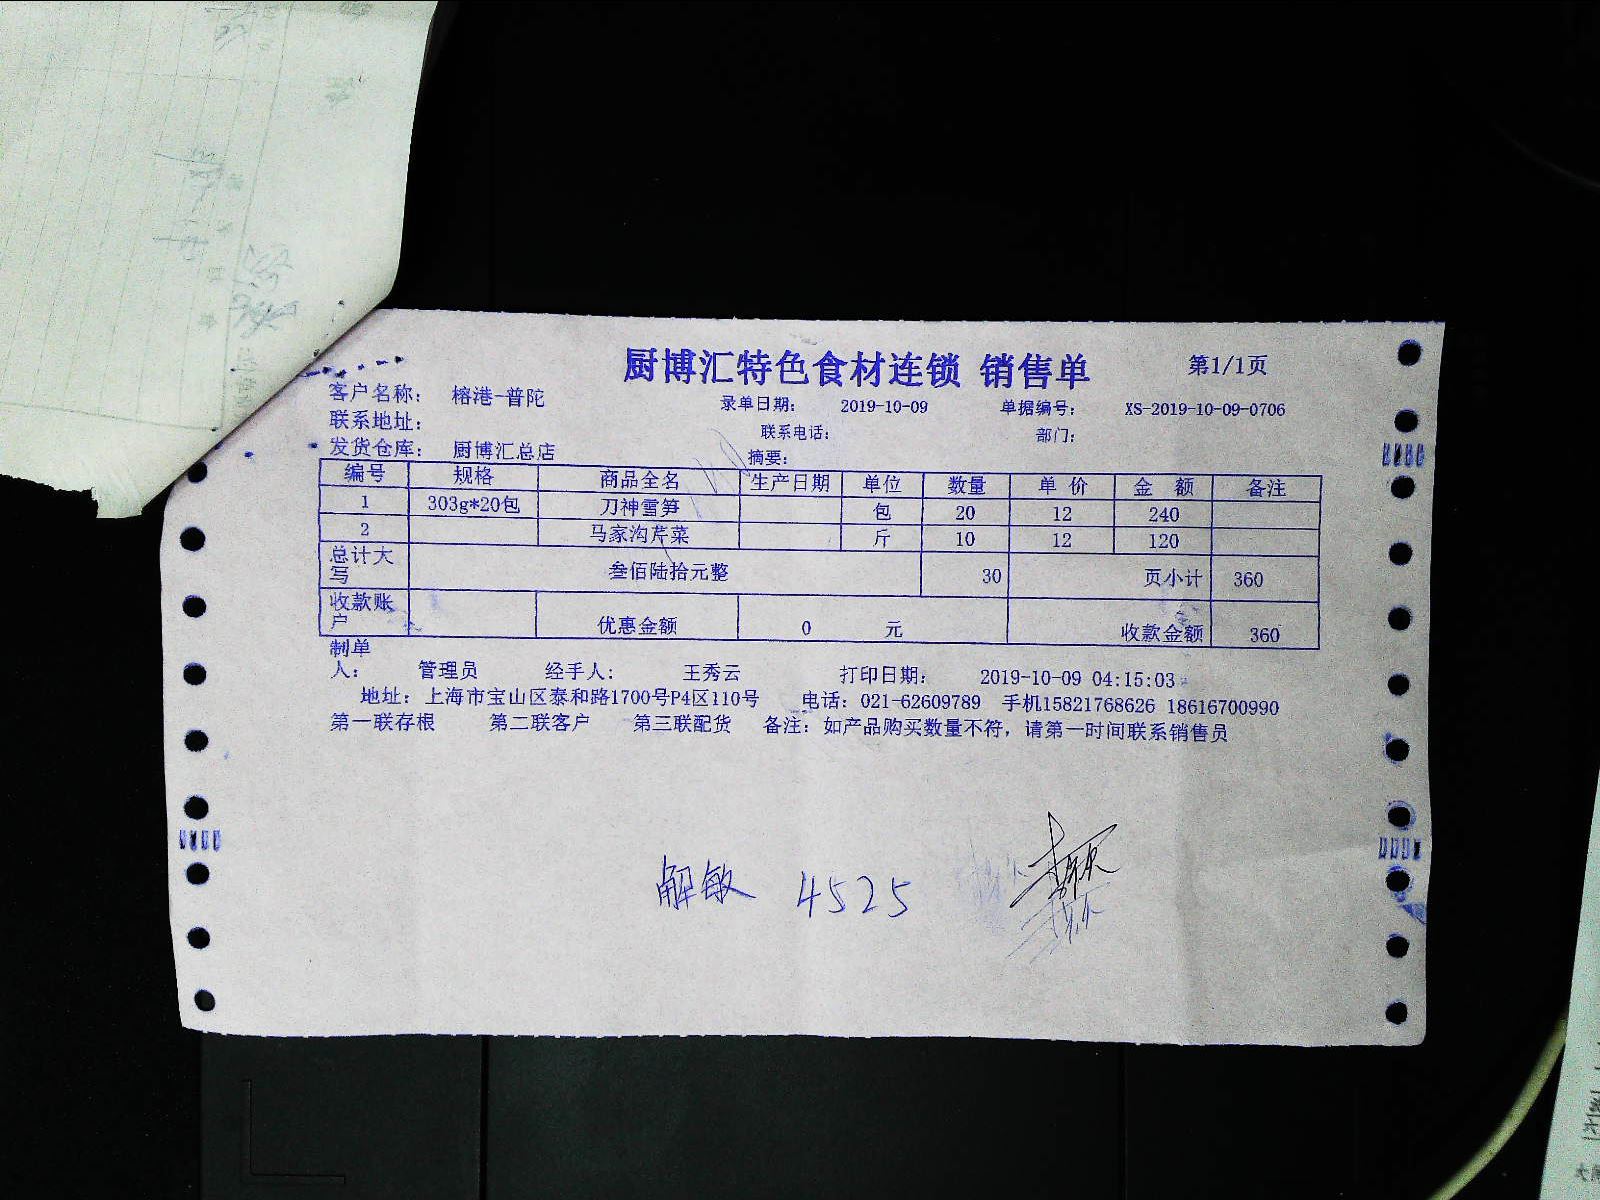 厨博汇特色食材连锁 销售单 第1/1页
客户名称： 榕港-普陀 录单日期： 2019-10-09 单据编号： XS-2019-10-09-0706
联系地址： 联系电话： 部门：
发货仓库： 厨博汇总店 摘要：
编号 规格 商品全名 生产日期 单位 数量 单 价 金 额 备注
1 303g*20包 刀神雪笋 包 20 12 240
2 马家沟芹菜 斤 10 12 120
总计大写 叁佰陆拾元整 30 页小计 360
收款账户 优惠金额 0 元 收款金额 360
制单人： 管理员 经手人： 王秀云 打印日期： 2019-10-09 04:15:03
地址：上海市宝山区泰和路1700号P4区110号 电话：021-62609789 手机15821768626 18616700990
第一联存根 第二联客户 第三联配货 备注：如产品购买数量不符，请第一时间联系销售员
解敏 4525